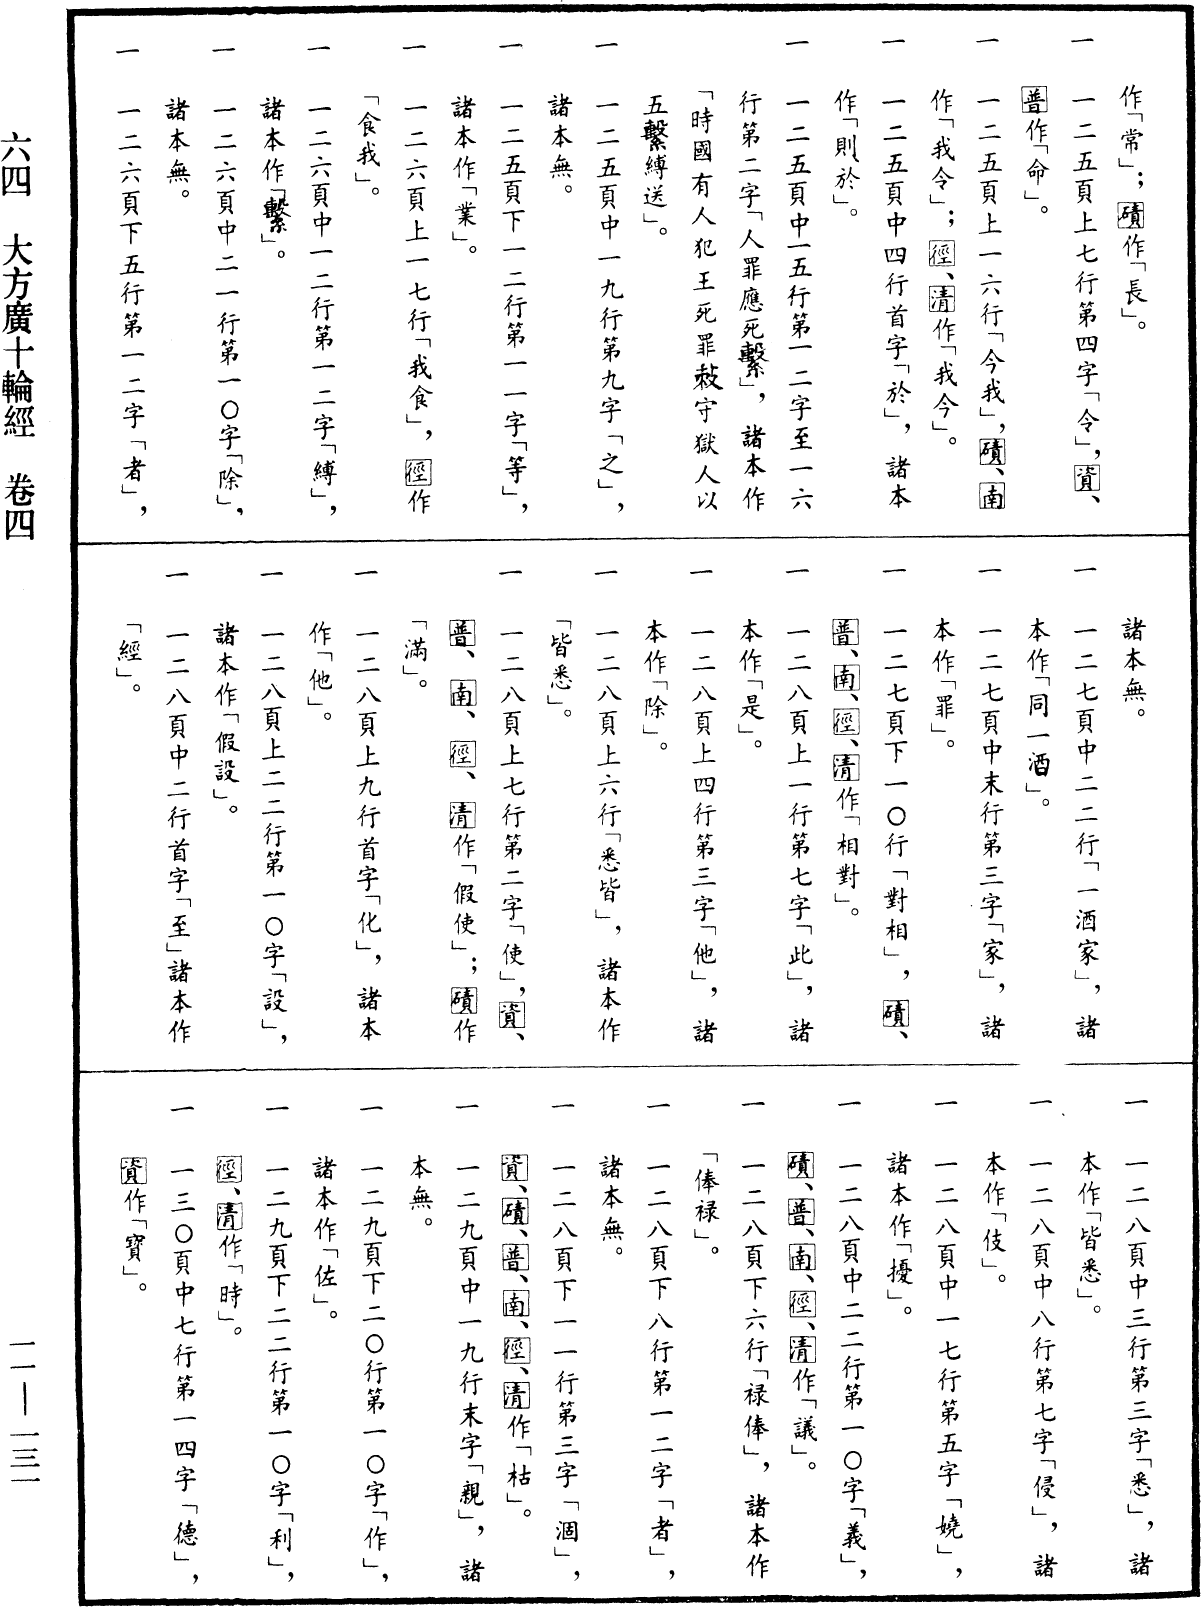 作「常」；磧作「長」。
一　一二五頁上七行第四字「令」，資、
普作「命」。
一　一二五頁上一六行「今我」，磧、南
作「我令」；徑、清作「我今」。
一　一二五頁中四行首字「於」，諸本
作「則於」。
一　一二五頁中一五行第一二字至一六
行第二字「人罪應死繫」，諸本作
「時國有人犯王死罪敕守獄人以
五繫縛送」。
一　一二五頁中一九行第九字「之」，
諸本無。
一　一二五頁下一二行第一一字「等」，
諸本作「業」。
一　一二六頁上一七行「我食」，徑作
「食我」。
一　一二六頁中一二行第一二字「縛」，
諸本作「繫」。
一　一二六頁中二一行第一〇字「除」，
諸本無。
一　一二六頁下五行第一二字「者」，
諸本無。
一　一二七頁中二二行「一酒家」，諸
本作「同一酒」。
一　一二七頁中末行第三字「家」，諸
本作「罪」。
一　一二七頁下一〇行「對相」，磧、
普、南、徑、清作「相對」。
一　一二八頁上一行第七字「此」，諸
本作「是」。
一　一二八頁上四行第三字「他」，諸
本作「除」。
一　一二八頁上六行「悉皆」，諸本作
「皆悉」。
一　一二八頁上七行第二字「使」，資、
普、南、徑、清作「假使」；磧作
「滿」。
一　一二八頁上九行首字「化」，諸本
作「他」。
一　一二八頁上二二行第一〇字「設」，
諸本作「假設」。
一　一二八頁中二行首字「至」諸本作
「經」。
一　一二八頁中三行第三字「悉」，諸
本作「皆悉」。
一　一二八頁中八行第七字「侵」，諸
本作「伎」。
一　一二八頁中一七行第五字「嬈」，
諸本作「擾」。
一　一二八頁中二二行第一〇字「義」，
磧、普、南、徑、清作「議」。
一　一二八頁下六行「禄俸」，諸本作
「俸禄」。
一　一二八頁下八行第一二字「者」，
諸本無。
一　一二八頁下一一行第三字「涸」，
資、磧、普、南、徑、清作「枯」。
一　一二九頁中一九行末字「親」，諸
本無。
一　一二九頁下二〇行第一〇字「作」，
諸本作「佐」。
一　一二九頁下二二行第一〇字「利」，
徑、清作「時」。
一　一三〇頁中七行第一四字「德」，
資作「寶」。
六四　大方廣十輪經　卷四
一一—一三一